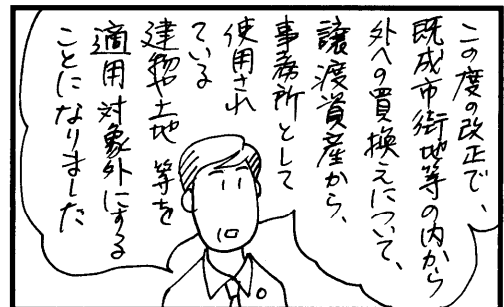 この度の改正で、
既成市街地等の内から
外への買換えについて、
譲渡資産から、
事務所として
使用され
ている
建物や土地等を
適用対象外にする
ことになりました